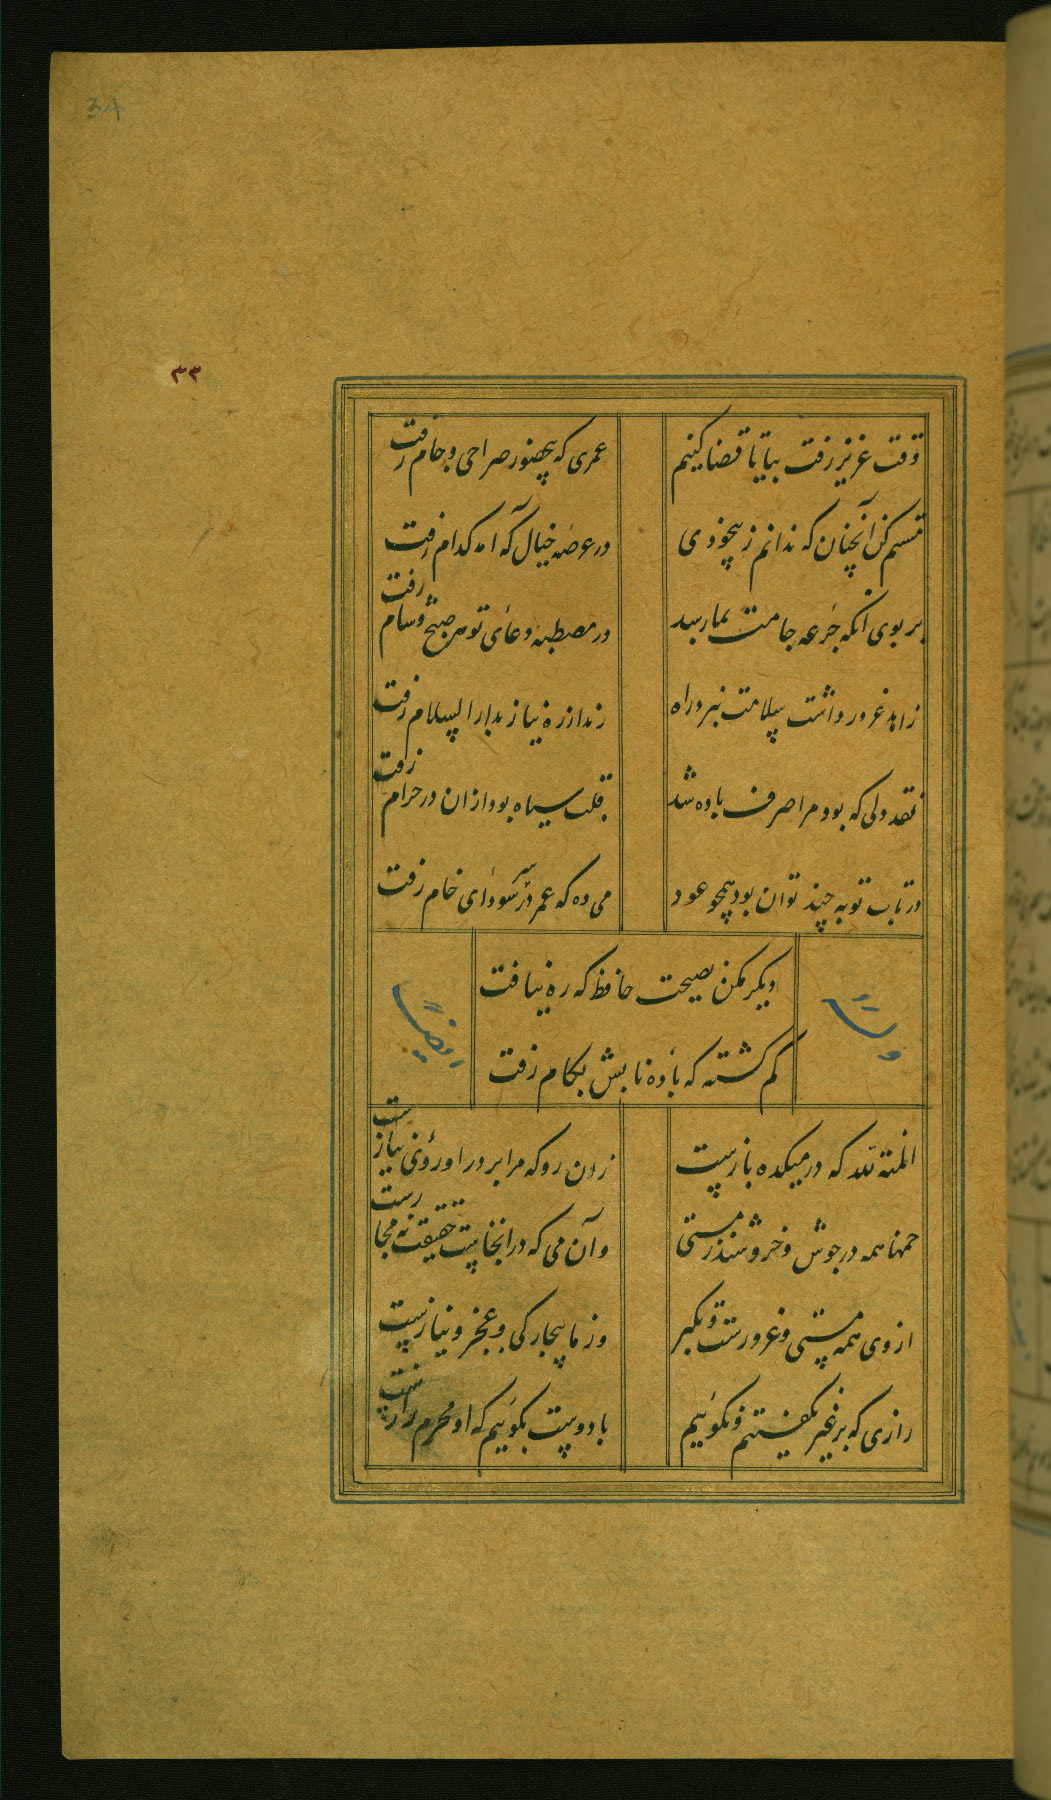 34
۳۳
وقت عزیز رفت بیا تا قضا کنیم
عمری که بیحضور صراحی و جام رفت
مستم کن آنچنان که ندانم ز بیخودی
در عرصه خیال که آمد کدام رفت
بر بوی آنکه جرعه جامت بما رسد
در مصطبه دعای تو هر صبح و شام رفت
زاهد غرور داشت سلامت نبرد راه
رند از ره نیاز بدارالسلام رفت
نقد دلی که بود مرا صرف باده شد
قلب سیاه بود از آن در حرام رفت
در تاب توبه چند توان بود همچو عود
می ده که عمر در سر سودای خام رفت
دیگر مکن نصیحت حافظ که ره نیافت
گم گشته که باده نابش بکام رفت
وله
ایضاً
المنة لله که در میکده بازست
زان رو که مرا بر در او روی نیازست
خمها همه در جوش و خروشند ز مستی
وآن می که در آنجاست حقیقت نه مجازست
از وی همه مستی و غرورست و تکبر
وز ما بیچارگی و عجز و نیازست
رازی که بر غیر نگفتیم و نگوئیم
با دوست بگوئیم که او محرم رازست